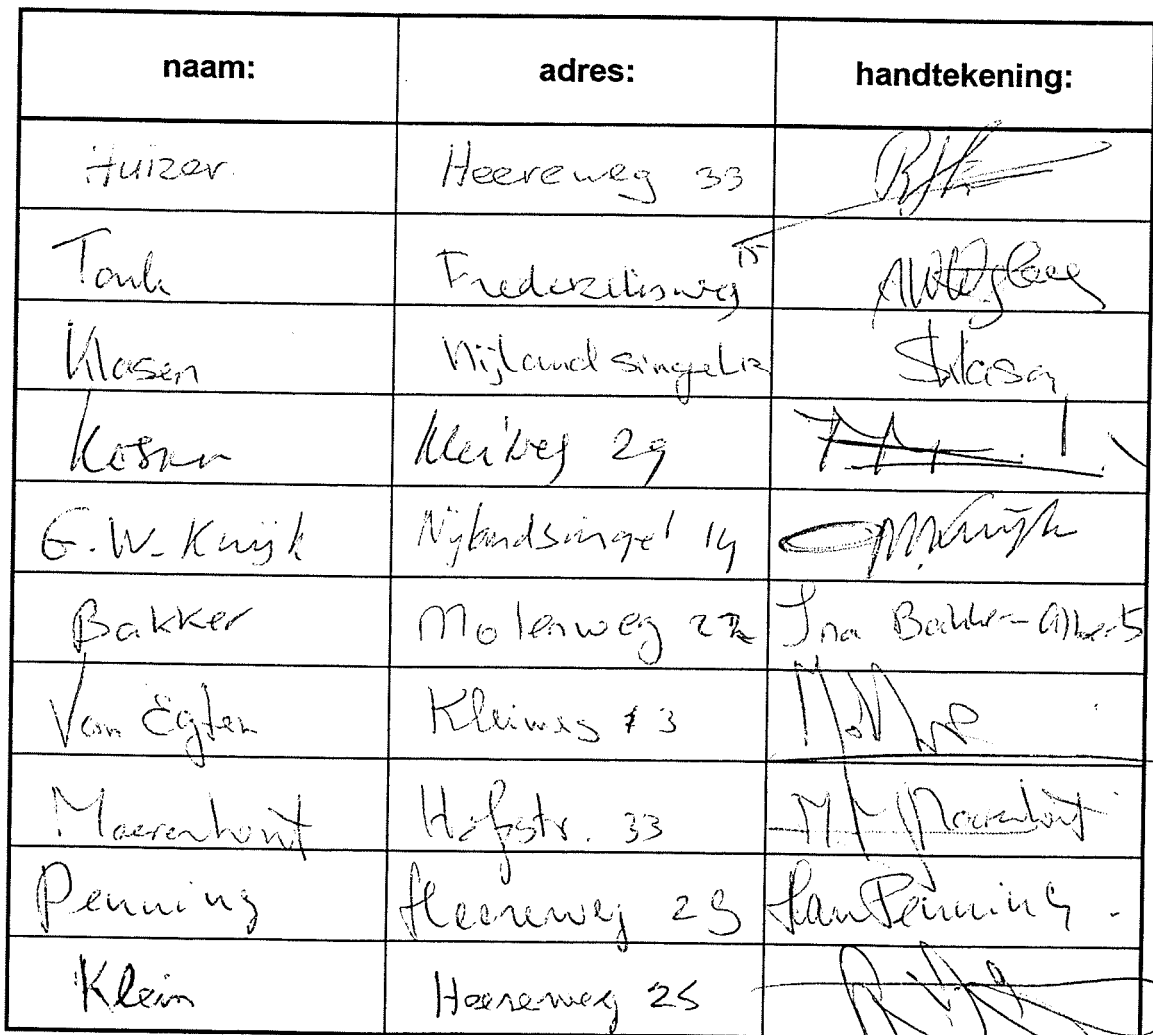 naam: adres: handtekening:
Huizer. Heereweg 33
Tonk 15
Klasen Nijlandsingel 12 SKlasen
Kleiweg 29
G.W. Kuijk Nijlandsingel 14
Bakker Molenweg 22 Ina Bakker-Alberts
Van Egten Kleiweg 3
Maerenhout Hofstr. 33 M.M. Maerenhout
Penning Heereweg 29 Penning.
Klein Heereweg 25